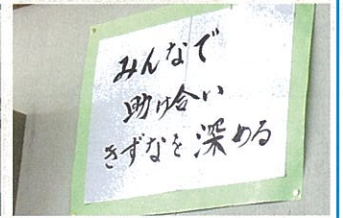 みんなで
助け合い
きずなを深める